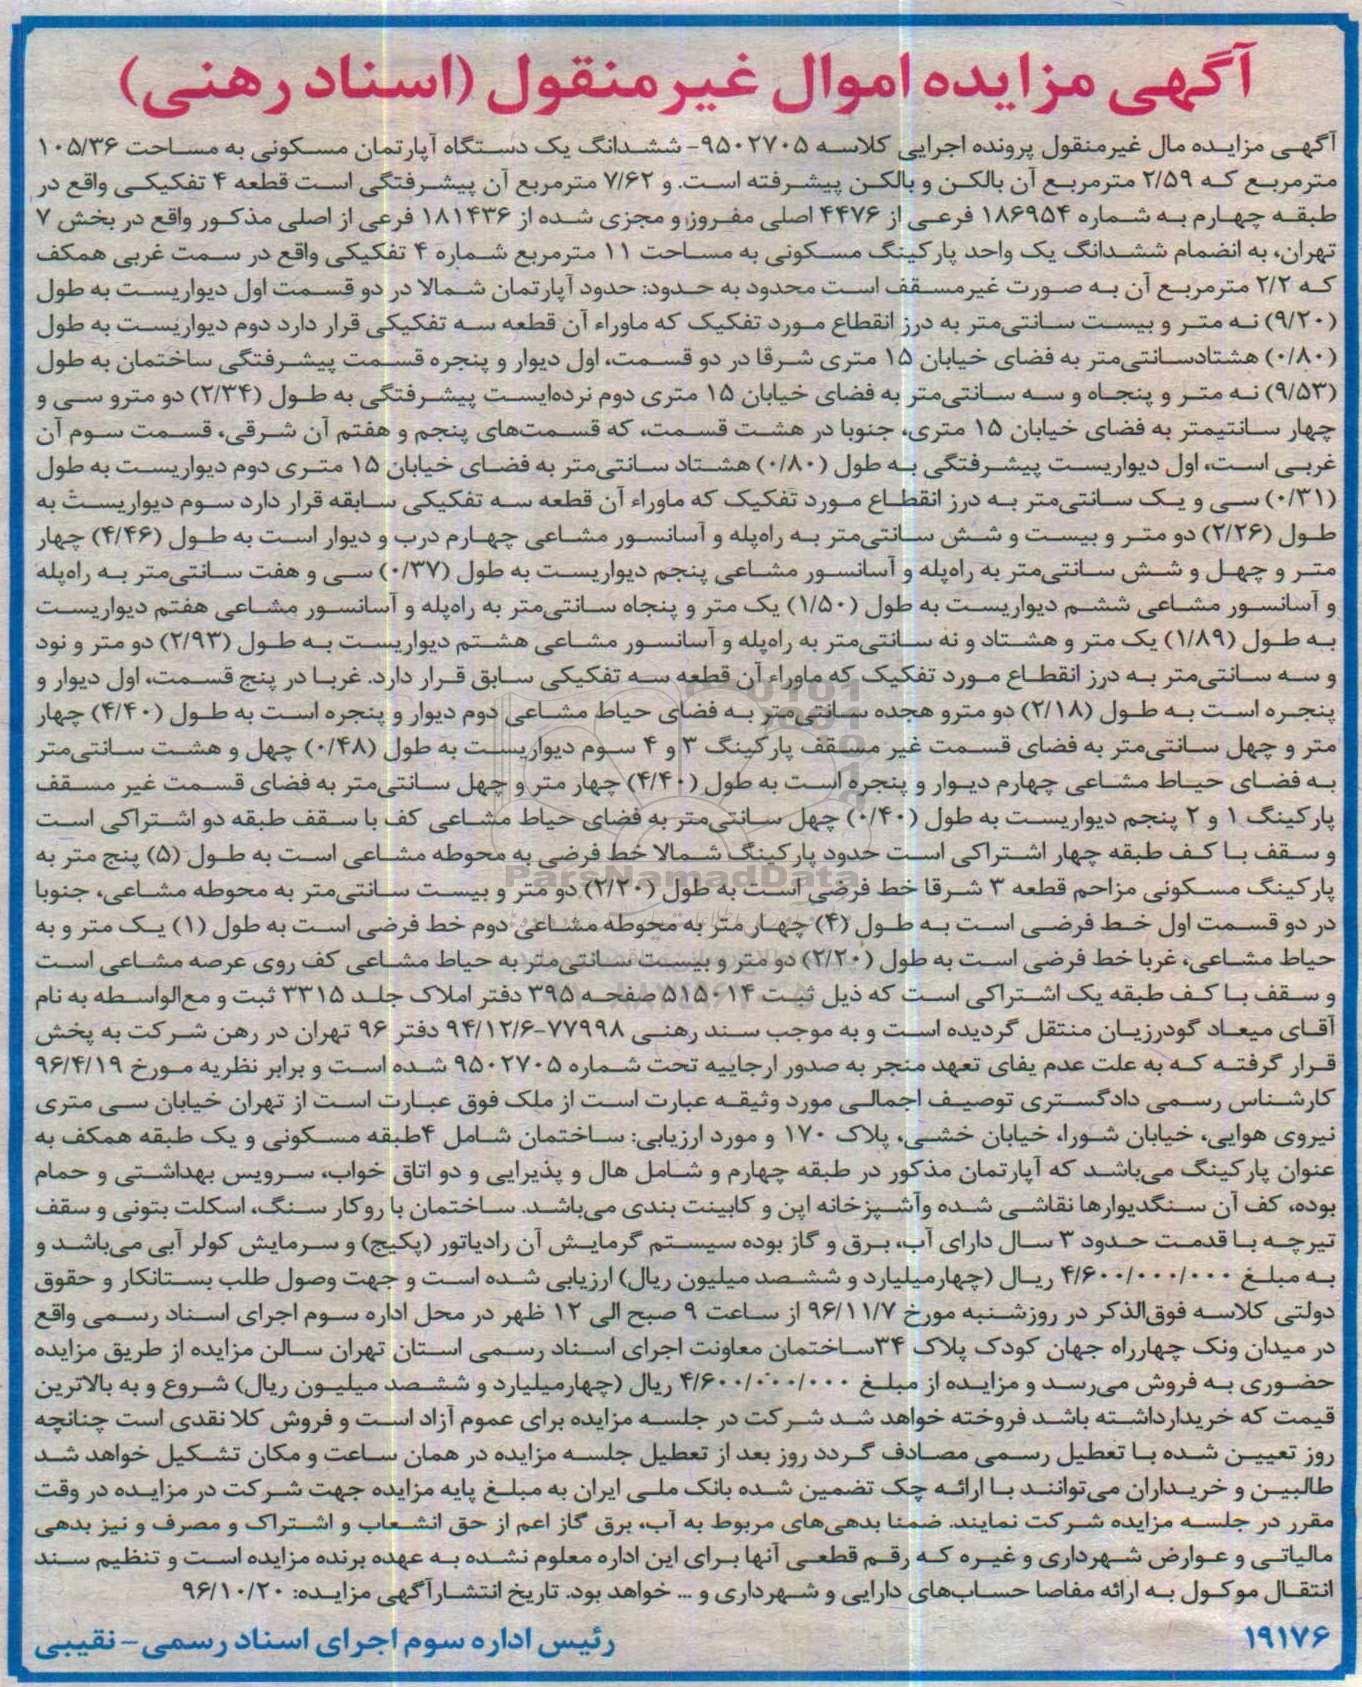 آگهی مزایده اموال غیرمنقول (اسناد رهنی)
آگهی مزایده مال غیرمنقول پرونده اجرایی کلاسه ۹۵۰۲۷۰۵- ششدانگ یک دستگاه آپارتمان مسکونی به مساحت ۱۰۵/۳۶
مترمربع که ۲/۵۹ مترمربع آن بالکن و بالکن پیشرفته است. و ۷/۶۲ مترمربع آن پیشرفتگی است قطعه ۴ تفکیکی واقع در
طبقه چهارم به شماره ۱۸۶۹۵۴ فرعی از ۴۴۷۶ اصلی مفروز و مجزی شده از ۱۸۱۴۳۶ فرعی از اصلی مذکور واقع در بخش ۷
تهران، به انضمام ششدانگ یک واحد پارکینگ مسکونی به مساحت ۱۱ مترمربع شماره ۴ تفکیکی واقع در سمت غربی همکف
که ۲/۲ مترمربع آن به صورت غیرمسقف است محدود به حدود: حدود آپارتمان شمالا در دو قسمت اول دیواریست به طول
(۹/۲۰) نه متر و بیست سانتی‌متر به درز انقطاع مورد تفکیک که ماوراء آن قطعه سه تفکیکی قرار دارد دوم دیواریست به طول
(۰/۸۰) هشتادسانتی‌متر به فضای خیابان ۱۵ متری شرقا در دو قسمت، اول دیوار و پنجره قسمت پیشرفتگی ساختمان به طول
(۹/۵۳) نه متر و پنجاه و سه سانتی‌متر به فضای خیابان ۱۵ متری دوم نرده‌ایست پیشرفتگی به طول (۲/۳۴) دو مترو سی و
چهار سانتیمتر به فضای خیابان ۱۵ متری، جنوبا در هشت قسمت، که قسمت‌های پنجم و هفتم آن شرقی، قسمت سوم آن
غربی است، اول دیواریست پیشرفتگی به طول (۰/۸۰) هشتاد سانتی‌متر به فضای خیابان ۱۵ متری دوم دیواریست به طول
(۰/۳۱) سی و یک سانتی‌متر به درز انقطاع مورد تفکیک که ماوراء آن قطعه سه تفکیکی سابقه قرار دارد سوم دیواریست به
طول (۲/۲۶) دو متر و بیست و شش سانتی‌متر به راه‌پله و آسانسور مشاعی چهارم درب و دیوار است به طول (۴/۴۶) چهار
متر و چهل و شش سانتی‌متر به راه‌پله و آسانسور مشاعی پنجم دیواریست به طول (۰/۳۷) سی و هفت سانتی‌متر به راه‌پله
و آسانسور مشاعی ششم دیواریست به طول (۱/۵۰) یک متر و پنجاه سانتی‌متر به راه‌پله و آسانسور مشاعی هفتم دیواریست
به طول (۱/۸۹) یک متر و هشتاد و نه سانتی‌متر به راه‌پله و آسانسور مشاعی هشتم دیواریست به طول (۲/۹۳) دو متر و نود
و سه سانتی‌متر به درز انقطاع مورد تفکیک که ماوراء آن قطعه سه تفکیکی سابق قرار دارد. غربا در پنج قسمت، اول دیوار و
پنجره است به طول (۲/۱۸) دو مترو هجده سانتی‌متر به فضای حیاط مشاعی دوم دیوار و پنجره است به طول (۴/۴۰) چهار
متر و چهل سانتی‌متر به فضای قسمت غیر مسقف پارکینگ ۳ و ۴ سوم دیواریست به طول (۰/۴۸) چهل و هشت سانتی‌متر
به فضای حیاط مشاعی چهارم دیوار و پنجره است به طول (۴/۴۰) چهار متر و چهل سانتی‌متر به فضای قسمت غیر مسقف
پارکینگ ۱ و ۲ پنجم دیواریست به طول (۰/۴۰) چهل سانتی‌متر به فضای حیاط مشاعی کف با سقف طبقه دو اشتراکی است
و سقف با کف طبقه چهار اشتراکی است حدود پارکینگ شمالا خط فرضی به محوطه مشاعی است به طول (۵) پنج متر به
پارکینگ مسکونی مزاحم قطعه ۳ شرقا خط فرضی است به طول (۲/۲۰) دو متر و بیست سانتی‌متر به محوطه مشاعی، جنوبا
در دو قسمت اول خط فرضی است به طول (۴) چهار متر به محوطه مشاعی دوم خط فرضی است به طول (۱) یک متر و به
حیاط مشاعی، غربا خط فرضی است به طول (۲/۲۰) دو متر و بیست سانتی‌متر به حیاط مشاعی کف روی عرصه مشاعی است
و سقف با کف طبقه یک اشتراکی است که ذیل ثبت ۵۱۵۰۱۴ صفحه ۳۹۵ دفتر املاک جلد ۳۳۱۵ ثبت و مع‌الواسطه به نام
آقای میعاد گودرزیان منتقل گردیده است و به موجب سند رهنی ۷۷۹۹۸-۹۴/۱۲/۶ دفتر ۹۶ تهران در رهن شرکت به پخش
قرار گرفته که به علت عدم یفای تعهد منجر به صدور ارجاییه تحت شماره ۹۵۰۲۷۰۵ شده است و برابر نظریه مورخ ۹۶/۴/۱۹
کارشناس رسمی دادگستری توصیف اجمالی مورد وثیقه عبارت است از ملک فوق عبارت است از تهران خیابان سی متری
نیروی هوایی، خیابان شورا، خیابان خشی، پلاک ۱۷۰ و مورد ارزیابی: ساختمان شامل ۴طبقه مسکونی و یک طبقه همکف به
عنوان پارکینگ می‌باشد که آپارتمان مذکور در طبقه چهارم و شامل هال و پذیرایی و دو اتاق خواب، سرویس بهداشتی و حمام
بوده، کف آن سنگدیوارها نقاشی شده وآشپزخانه اپن و کابینت بندی می‌باشد. ساختمان با روکار سنگ، اسکلت بتونی و سقف
تیرچه با قدمت حدود ۳ سال دارای آب، برق و گاز بوده سیستم گرمایش آن رادیاتور (پکیج) و سرمایش کولر آبی می‌باشد و
به مبلغ ۴/۶۰۰/۰۰۰/۰۰۰ ریال (چهارمیلیارد و ششصد میلیون ریال) ارزیابی شده است و جهت وصول طلب بستانکار و حقوق
دولتی کلاسه فوق‌الذکر در روزشنبه مورخ ۹۶/۱۱/۷ از ساعت ۹ صبح الی ۱۲ ظهر در محل اداره سوم اجرای اسناد رسمی واقع
در میدان ونک چهارراه جهان کودک پلاک ۳۴ساختمان معاونت اجرای اسناد رسمی استان تهران سالن مزایده از طریق مزایده
حضوری به فروش می‌رسد و مزایده از مبلغ ۴/۶۰۰/۰۰۰/۰۰۰ ریال (چهارمیلیارد و ششصد میلیون ریال) شروع و به بالاترین
قیمت که خریدارداشته باشد فروخته خواهد شد شرکت در جلسه مزایده برای عموم آزاد است و فروش کلا نقدی است چنانچه
روز تعیین شده با تعطیل رسمی مصادف گردد روز بعد از تعطیل جلسه مزایده در همان ساعت و مکان تشکیل خواهد شد
طالبین و خریداران می‌توانند با ارائه چک تضمین شده بانک ملی ایران به مبلغ پایه مزایده جهت شرکت در مزایده در وقت
مقرر در جلسه مزایده شرکت نمایند. ضمنا بدهی‌های مربوط به آب، برق گاز اعم از حق انشعاب و اشتراک و مصرف و نیز بدهی
مالیاتی و عوارض شهرداری و غیره که رقم قطعی آنها برای این اداره معلوم نشده به عهده برنده مزایده است و تنظیم سند
انتقال موکول به ارائه مفاصا حساب‌های دارایی و شهرداری و ... خواهد بود. تاریخ انتشارآگهی مزایده: ۹۶/۱۰/۲۰
۱۹۱۷۶ رئیس اداره سوم اجرای اسناد رسمی - نقیبی
ParsNamadData